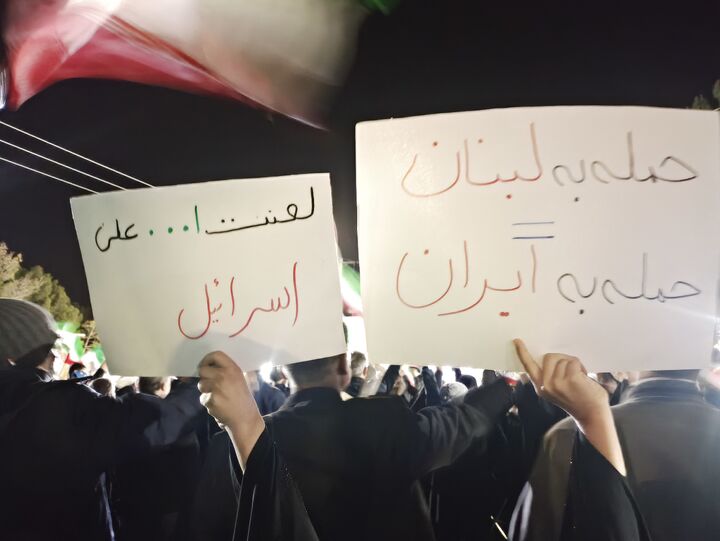 حمله به لبنان
=
حمله به ایران
لعنت ا... علی
اسرائیل